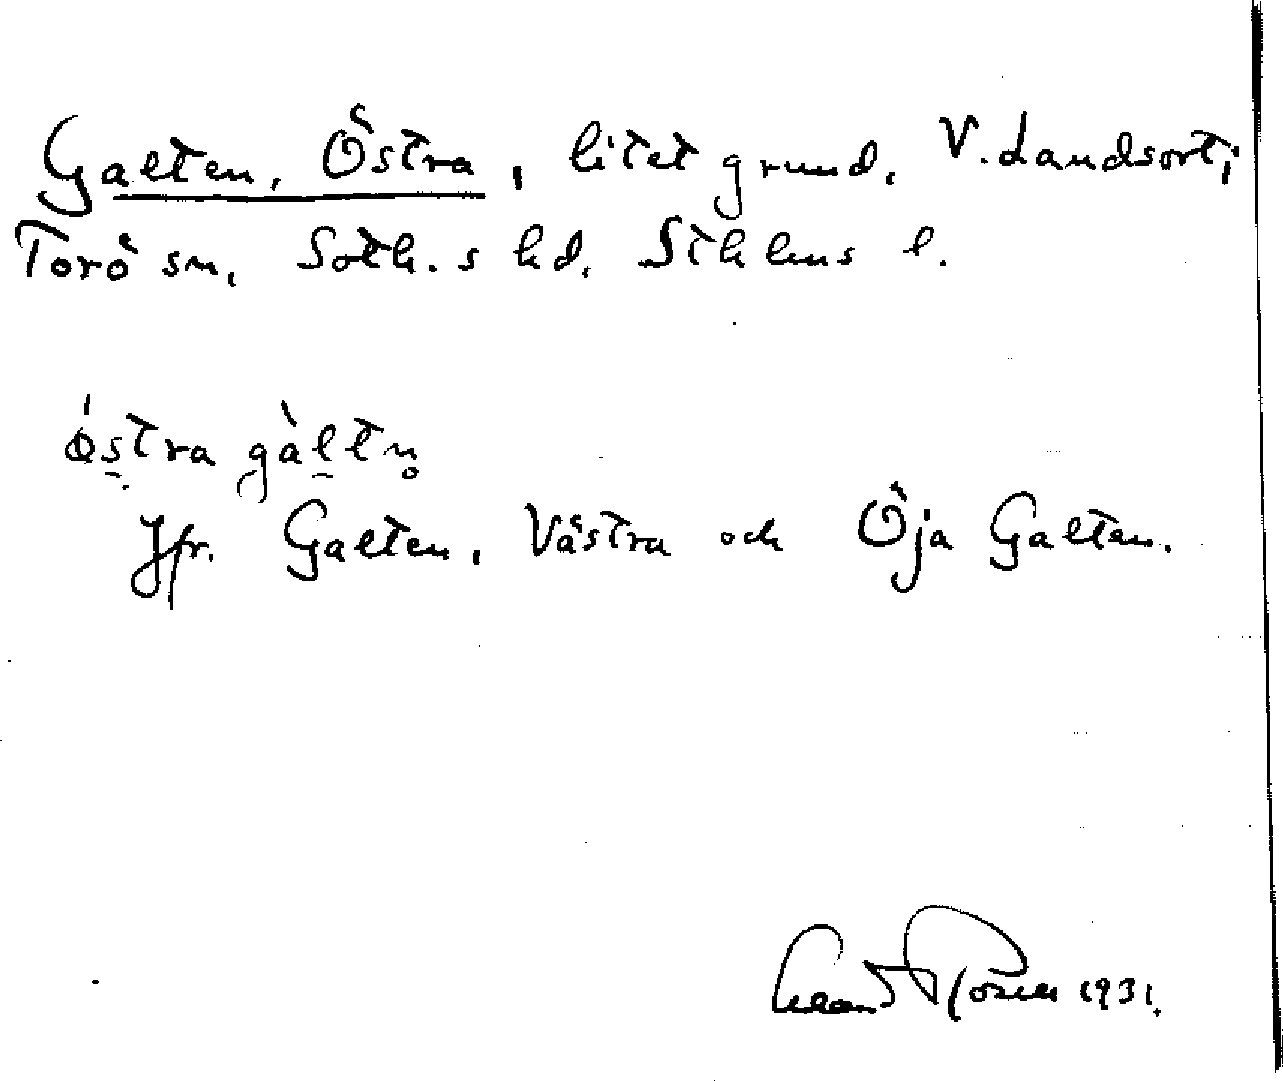 Galten, Östra, litet grund. V. Landsort,
Torö sn, Soth.s hd. Sthlms l.
östra gàltn̥
Jfr. Galten, Västra och Öja Galten.
1931.